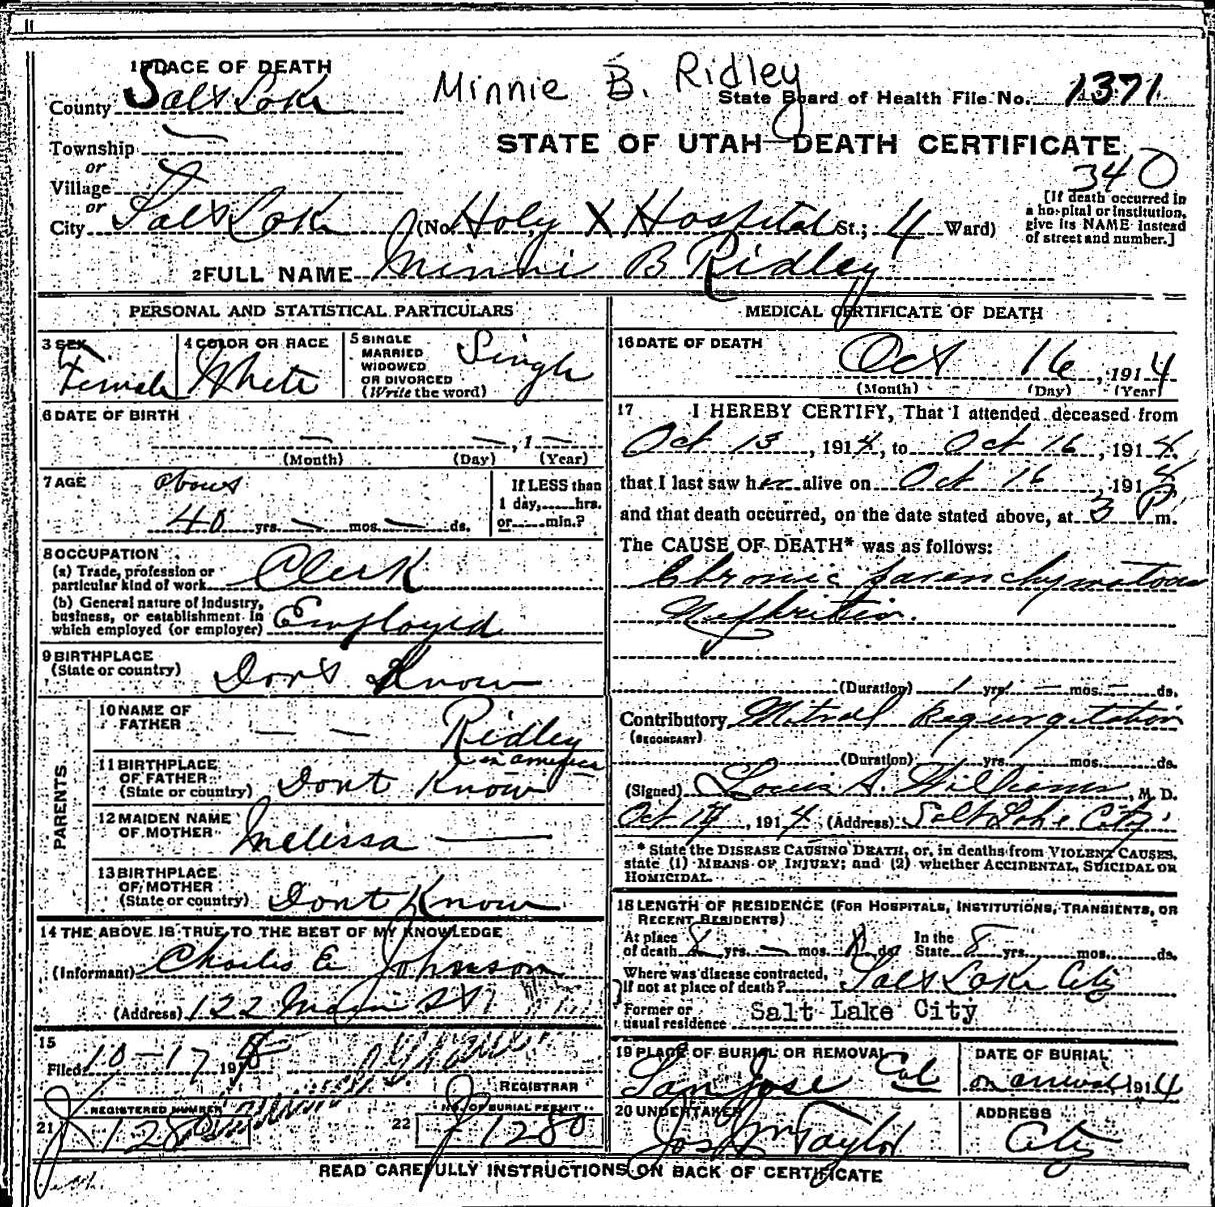 1 PLACE OF DEATH
Minnie B. Ridley
County Salt Lake
State Board of Health File No. 1371
Township —
STATE OF UTAH—DEATH CERTIFICATE
or
Village
340
or
City Salt Lake (No. Holy X Hospital St.; 4 Ward)
[If death occurred in
a hospital or institution,
give its NAME instead
of street and number.]
2 FULL NAME Minnie B Ridley
PERSONAL AND STATISTICAL PARTICULARS
3 SEX Female
4 COLOR OR RACE White
5 SINGLE
MARRIED
WIDOWED
OR DIVORCED
(Write the word) Single
6 DATE OF BIRTH
— — , 1 —
(Month) (Day) (Year)
7 AGE about
40 yrs. — mos. — ds.
If LESS than
1 day, hrs.
or min.?
8 OCCUPATION
(a) Trade, profession or
particular kind of work Clerk
(b) General nature of industry,
business, or establishment in
which employed (or employer) Employed
9 BIRTHPLACE
(State or country) Don't Know
PARENTS
10 NAME OF
FATHER — — Ridley
11 BIRTHPLACE
OF FATHER
(State or country) Dont Know in america
12 MAIDEN NAME
OF MOTHER Melissa —
13 BIRTHPLACE
OF MOTHER
(State or country) Dont Know
14 THE ABOVE IS TRUE TO THE BEST OF MY KNOWLEDGE
(Informant) Charles E Johnson
(Address) 122 Main St
15
Filed 10-17 191
REGISTRAR
REGISTERED NUMBER
21 1280
NO. OF BURIAL PERMIT
22 1280
MEDICAL CERTIFICATE OF DEATH
16 DATE OF DEATH
Oct 16, 1914
(Month) (Day) (Year)
17 I HEREBY CERTIFY, That I attended deceased from
Oct 13, 1914, to Oct 16, 1914.
that I last saw her alive on Oct 16 191
and that death occurred, on the date stated above, at 3 P m.
The CAUSE OF DEATH* was as follows:
Chronic parenchymatous
Nephritis.
(Duration) 1 yrs. — mos. — ds.
Contributory Mitral Regurgitation
(SECONDARY)
(Duration) yrs. mos. ds.
(Signed) Louis A. Williams, M. D.
Oct 17, 1914 (Address) Salt Lake City
* State the DISEASE CAUSING DEATH, or, in deaths from VIOLENT CAUSES,
state (1) MEANS OF INJURY; and (2) whether ACCIDENTAL, SUICIDAL OR
HOMICIDAL.
18 LENGTH OF RESIDENCE (FOR HOSPITALS, INSTITUTIONS, TRANSIENTS, OR
RECENT RESIDENTS)
At place
of death 8 yrs. — mos. ds. In the
State 8 yrs. mos. ds.
Where was disease contracted,
If not at place of death? Salt Lake City
Former or
usual residence Salt Lake City
19 PLACE OF BURIAL OR REMOVAL
San Jose Cal
DATE OF BURIAL
on arrival 1914
20 UNDERTAKER
Jos Wm Taylor
ADDRESS
City
READ CAREFULLY INSTRUCTIONS ON BACK OF CERTIFICATE